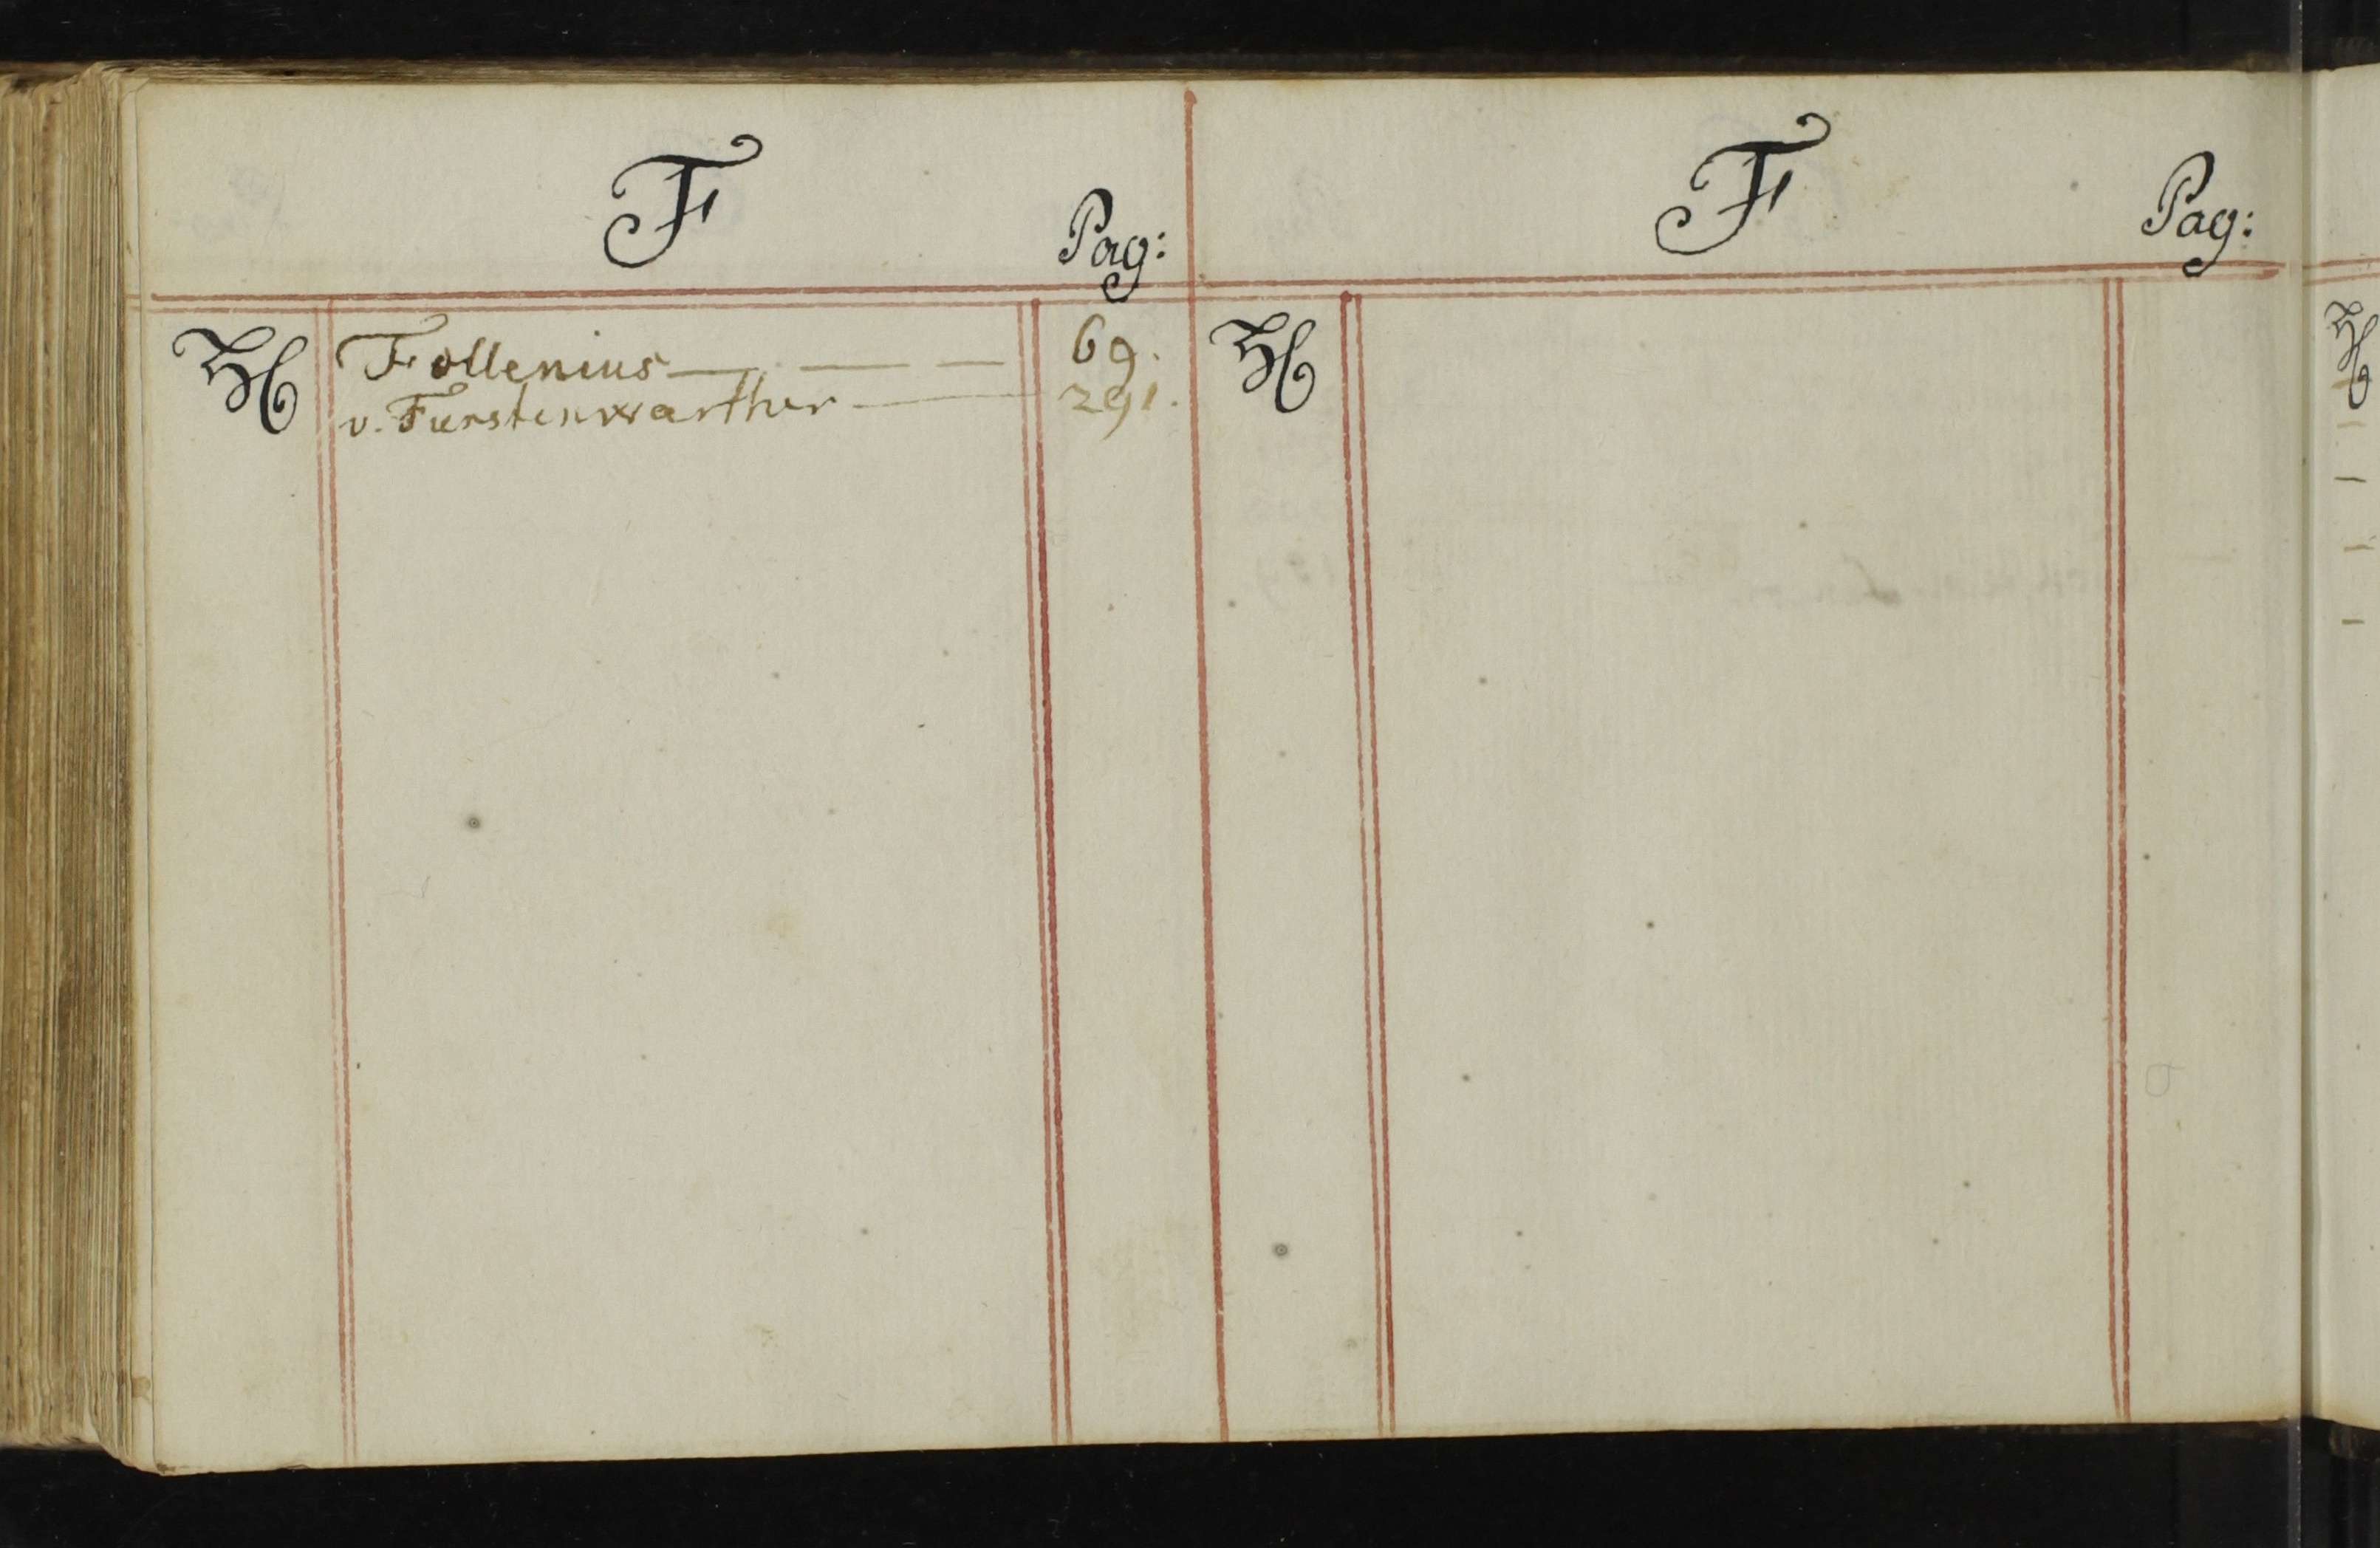 F
Pag:
H Follenius — — — 69.
v. Furstenwarther — 291.
F
Pag:
H